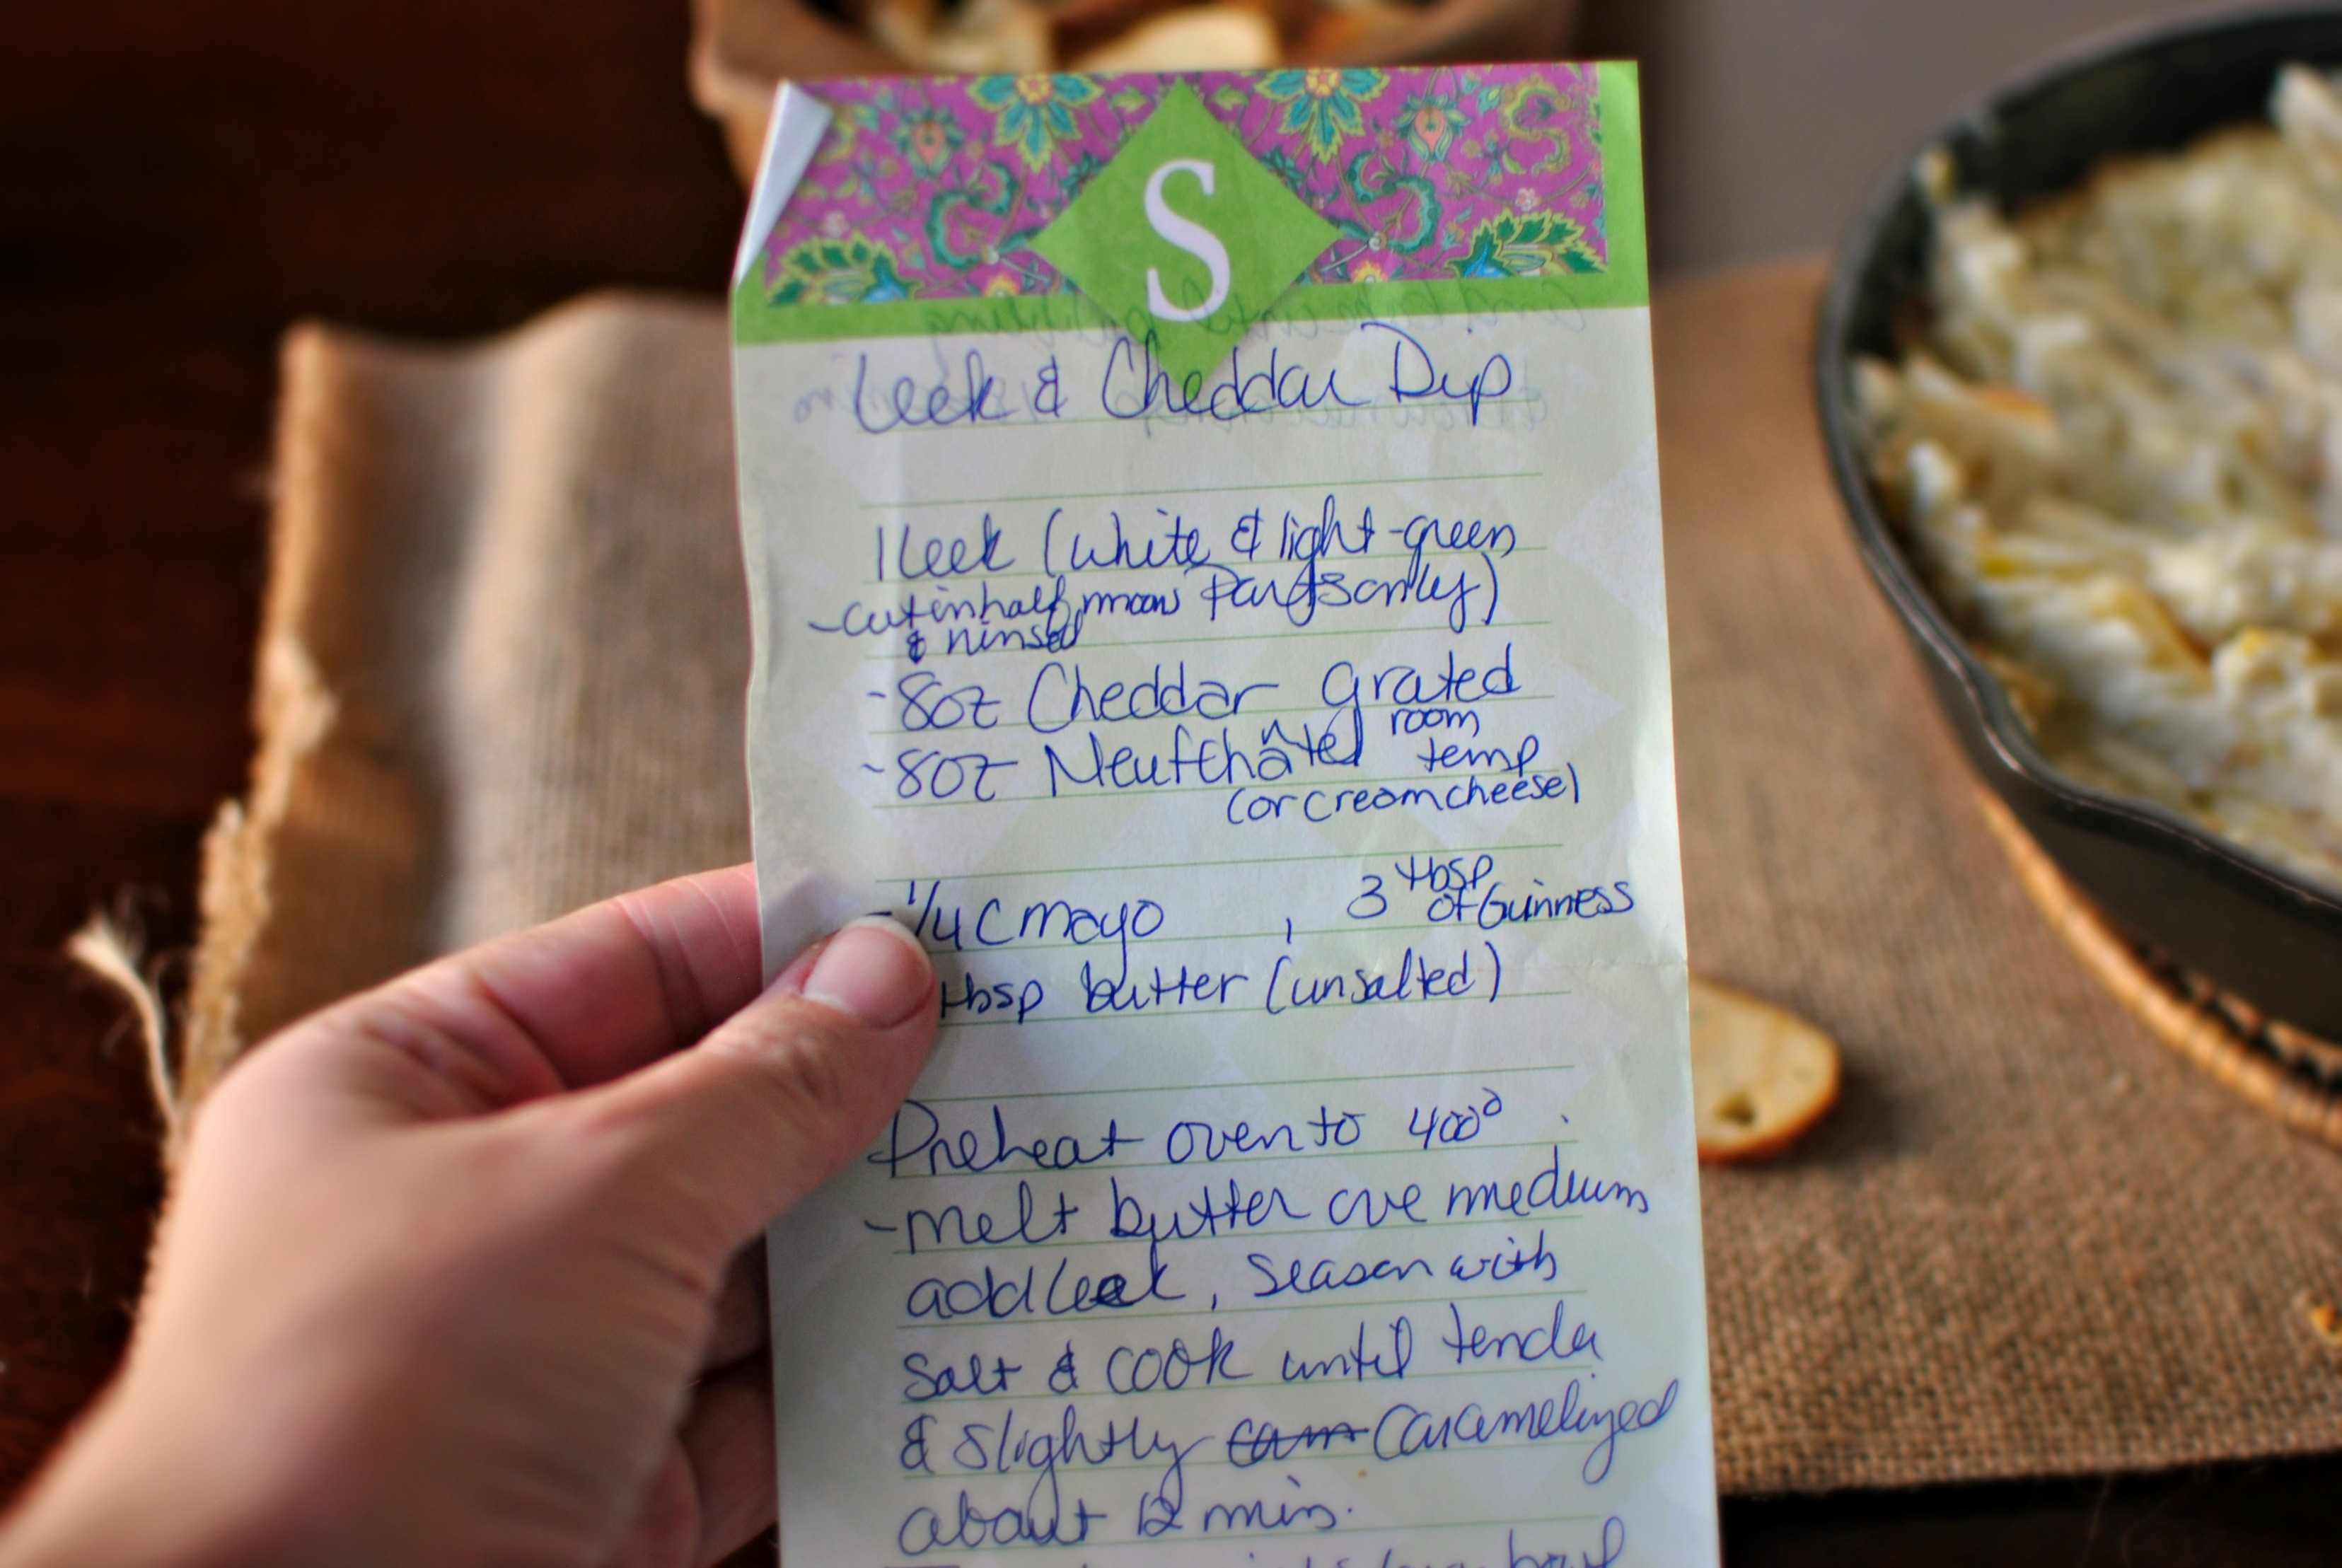 S
Leek & Cheddar Dip
1 leek (white & light-green
parts only)
- cut in half moons
& rinsed
- 8oz Cheddar grated
- 8oz Neufchâtel room
temp
(or cream cheese)
- 1/4 C mayo , 3 tbsp
of Guinness
tbsp butter (unsalted)
Preheat oven to 400°
- melt butter ove medium
add leek, season with
salt & cook until tender
& slightly caramelized
about 12 min.
bowl